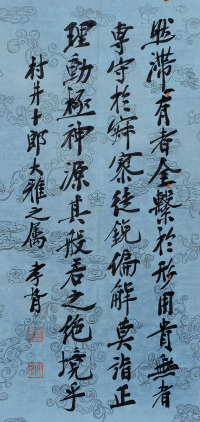 然滯有者全繫於形用貴無者
專守於寂寥徒銳偏解莫詣正
理動極神源其般若之絕境乎
村井十郎大雅之属 孝胥